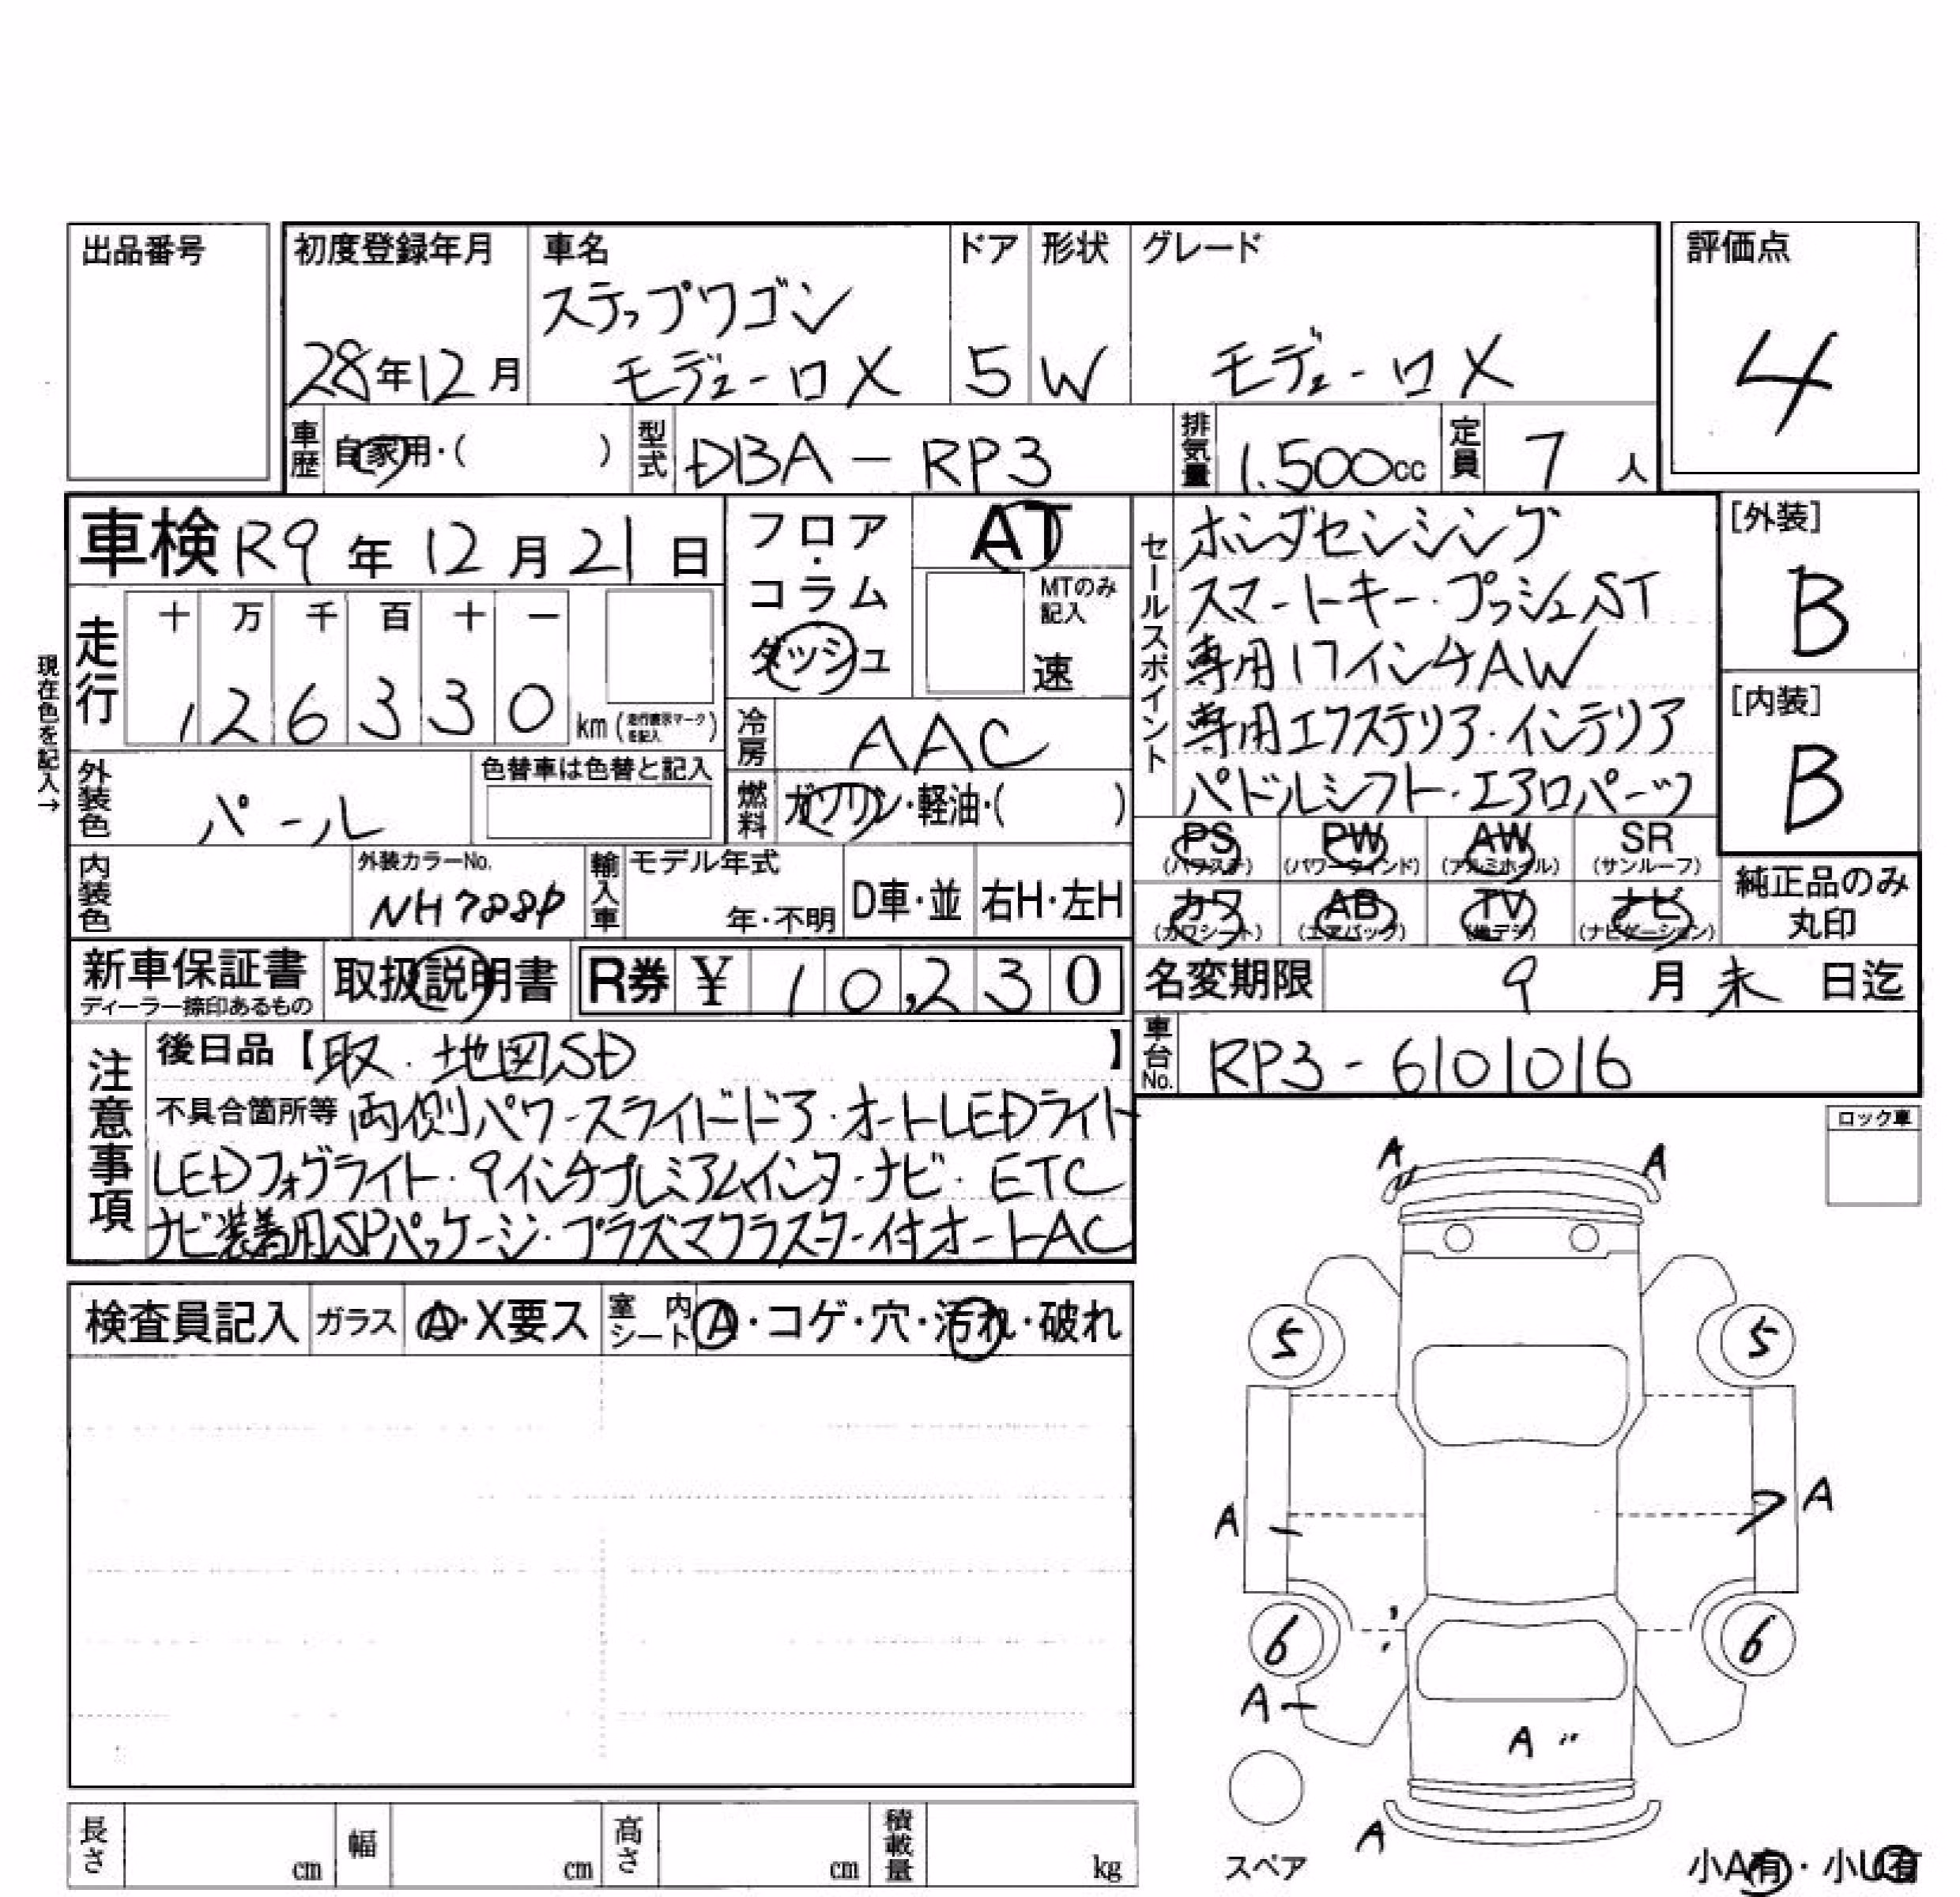 出品番号
初度登録年月 車名 ドア 形状 グレード 評価点
ステップワゴン
28年12月 モデューロX 5 W モデューロX 4
車歴 自家用・( ) 型式 DBA-RP3 排気量 1.500cc 定員 7人
車検 R9年12月21日
フロア・コラム ダッシュ
AT
MTのみ記入
速
走行
十 万 千 百 十 一
1 2 6 3 3 0 km (走行表示マークを記入)
現在色を記入→
冷房 AAC
外装色 パール
色替車は色替と記入
燃料 ガソリン・軽油・( )
内装色
外装カラーNo.
NH788P
輸入車 モデル年式
年・不明 D車・並 右H・左H
セールスポイント
ホンダセンシング
スマートキー・プッシュST
専用17インチAW
専用エクステリア・インテリア
パドルシフト・エアロパーツ
[外装]
B
[内装]
B
PS PW AW SR
(パワステ) (パワーウィンド) (アルミホイル) (サンルーフ)
カワ AB TV ナビ
(カワシート) (エアバッグ) (地デジ) (ナビゲーション)
純正品のみ
丸印
新車保証書
ディーラー捺印あるもの
取扱説明書 R券 ¥ 10,230
名変期限 9月末日迄
車台No. RP3-6101016
注意事項
後日品【取・地図SD】
不具合箇所等 両側パワースライドドア・オートLEDライト
LEDフォグライト・9インチプレミアムインターナビ・ETC
ナビ装着用SPパッケージ・プラズマクラスター付オートAC
ロック車
検査員記入 ガラス A・X要ス 室内シート A・コゲ・穴・汚れ・破れ
A A
5 5
A A
6 6
A
A
A
スペア
小A有・小U有
長さ cm 幅 cm 高さ cm 積載量 kg